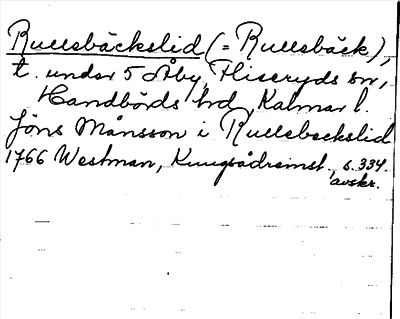 Rullsbäckslid (= Rullsbäck),
t. under 5 Åby, Fliseryds sn,
Handbörds hd, Kalmar l.
Jöns Månsson i Rullsbackslid
1766 Westman, Kungsådreinst., s. 334.
avskr.